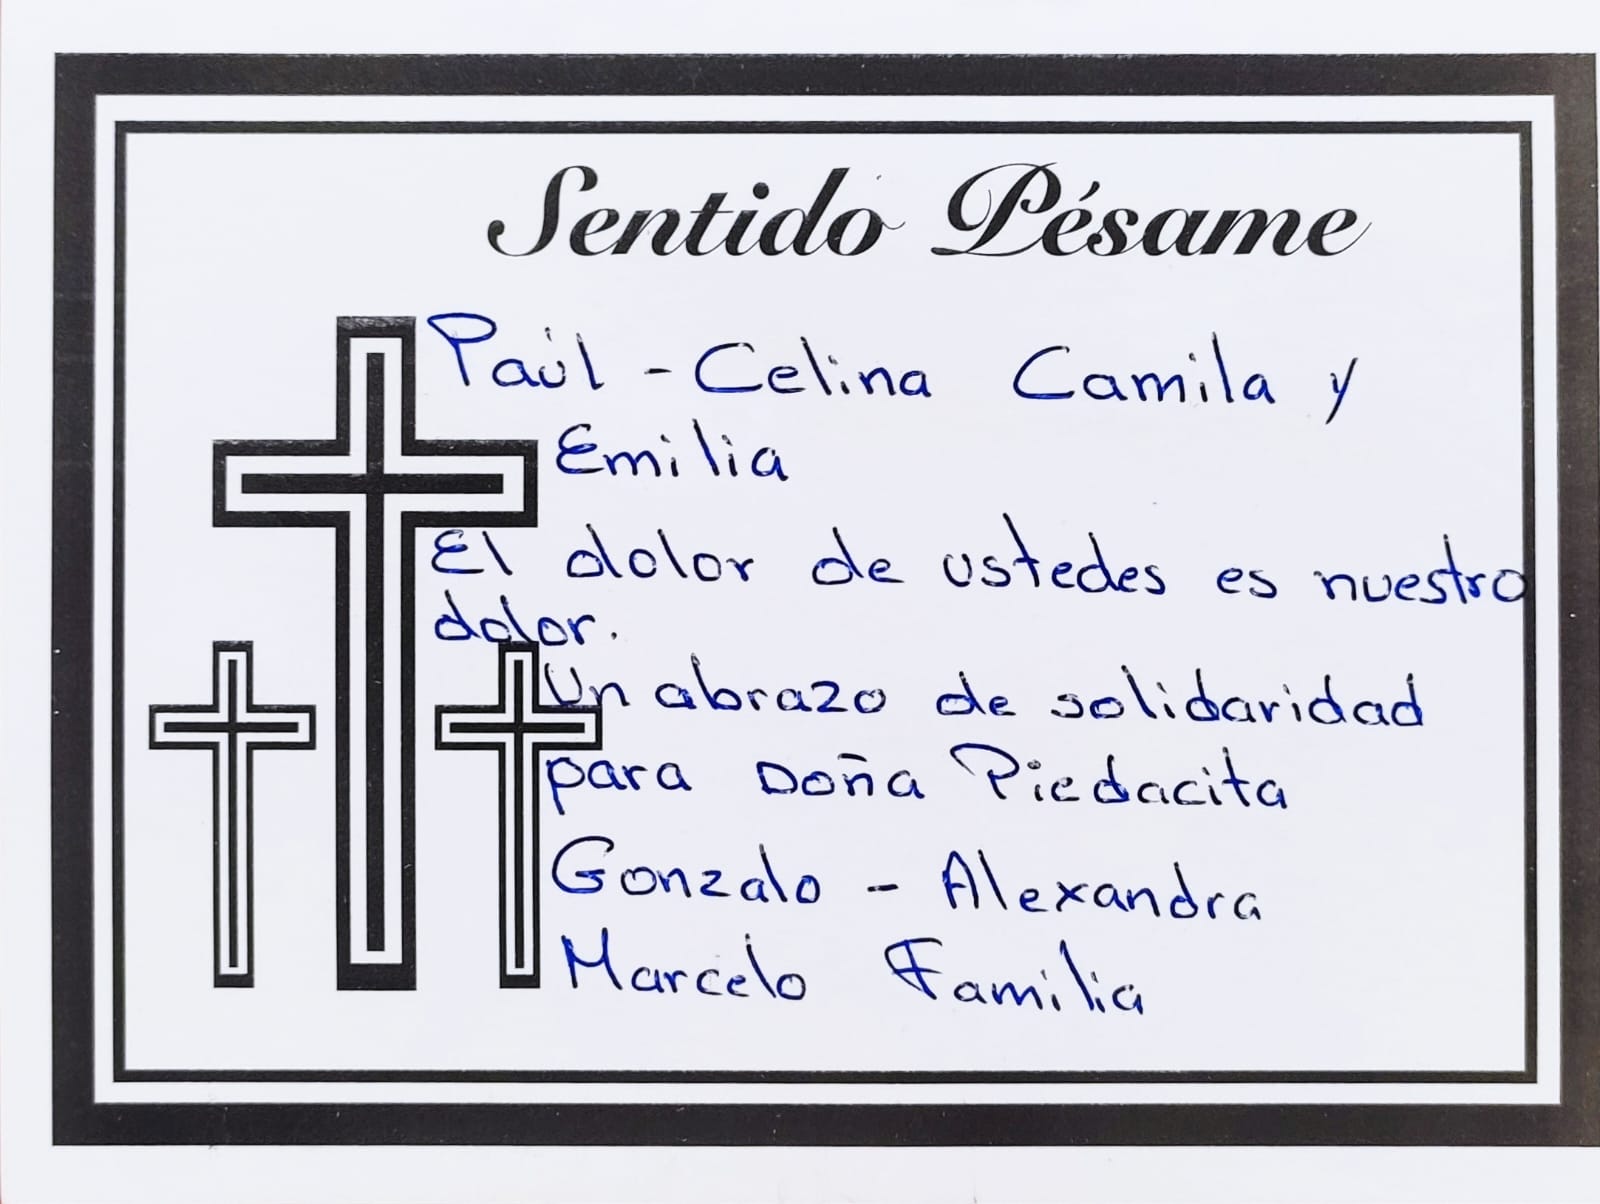 Sentido Pésame
Paúl - Celina Camila y
Emilia
El dolor de ustedes es nuestro
dolor.
Un abrazo de solidaridad
para Doña Piedacita
Gonzalo - Alexandra
Marcelo Familia